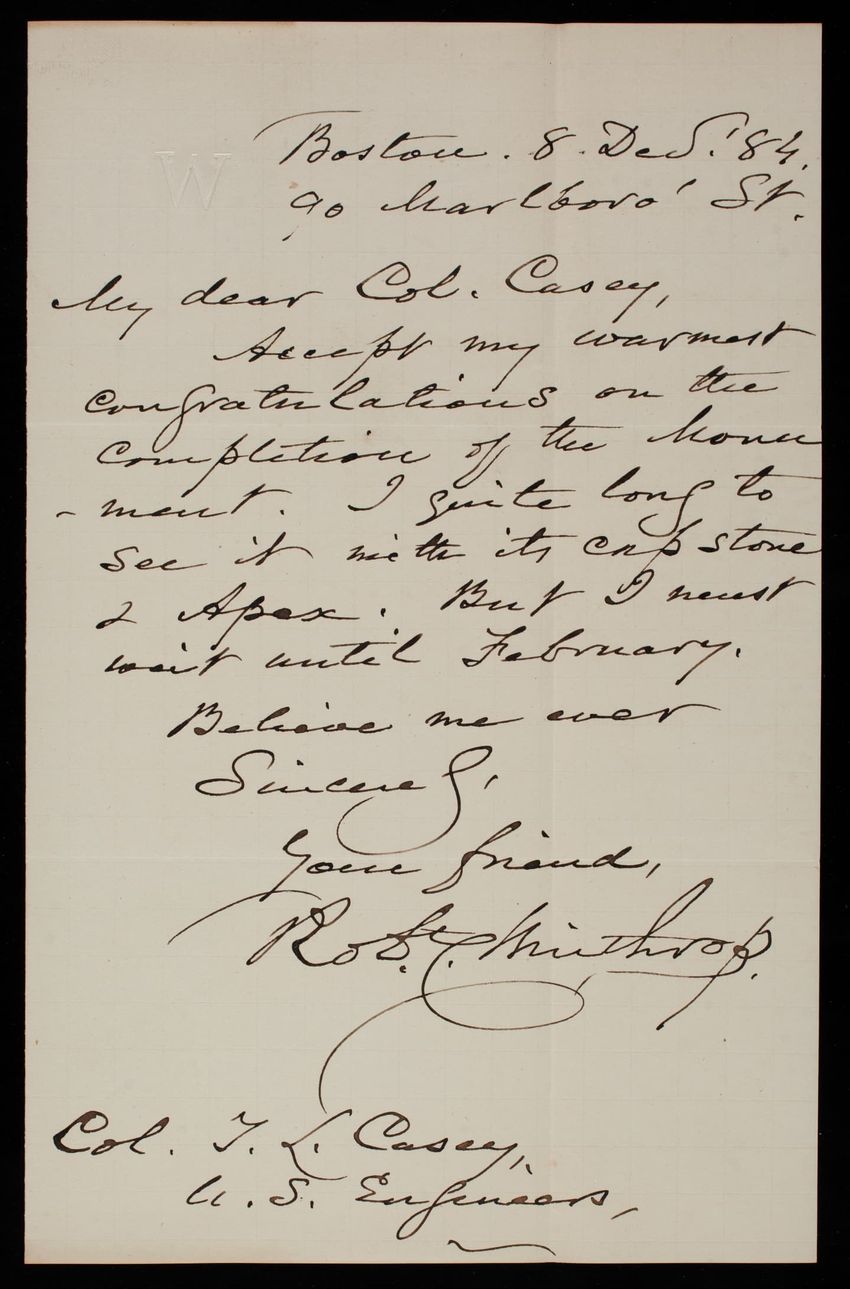 W
Boston. 8. Dec.' 84.
90 Marlboro' St.
My dear Col. Casey,
Accept my warmest
congratulations on the
completion of the Monu
-ment. I quite long to
see it with its cap stone
& Apex. But I must
wait until February.
Believe me ever
Sincerely,
Your friend,
Robt. C. Winthrop.
Col. T. L. Casey,
U. S. Engineers,